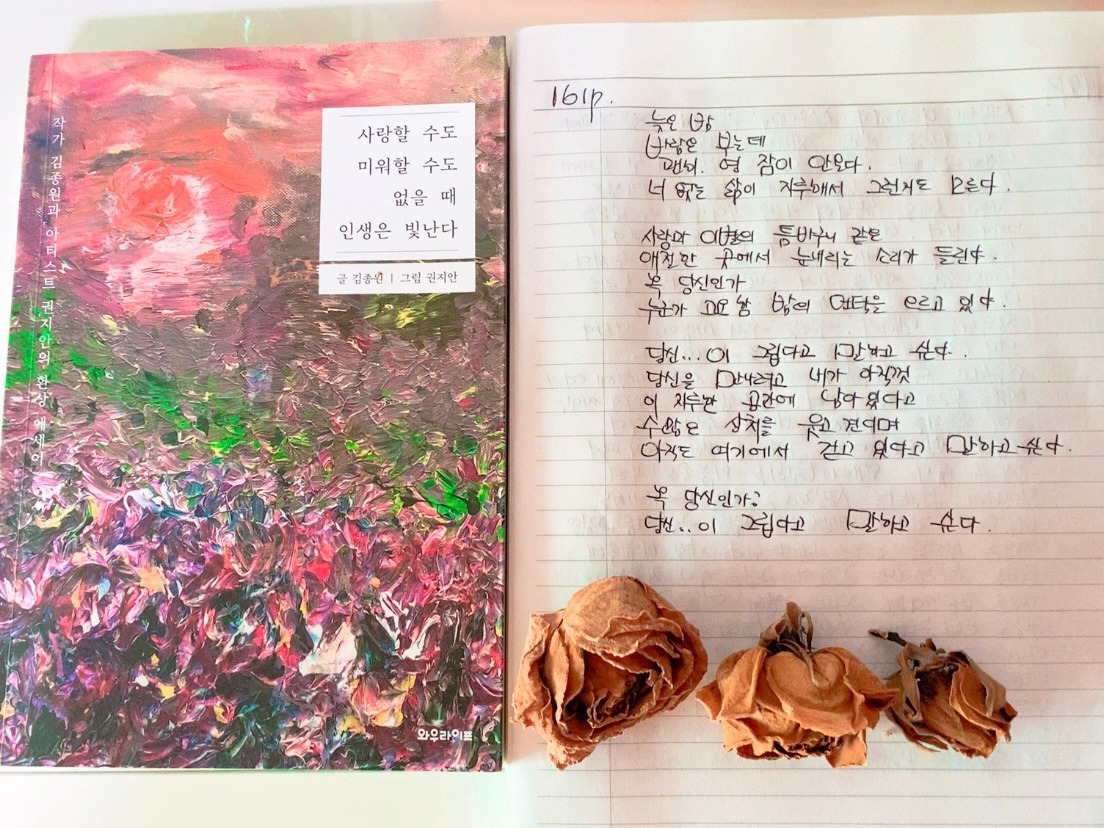 작가 김종원과 아티스트 권지안의 환상 에세이
사랑할 수도
미워할 수도
없을 때
인생은 빛난다
글 김종원 | 그림 권지안
와우라이프
161p.
늦은 밤
바람은 부는데
괜히, 영 잠이 안온다.
너 없는 삶이 지루해서 그런지도 모른다.
사랑과 이별의 틈바구니 같은
애진한 곳에서 눈내리는 소리가 들린다.
혹 당신인가
누군가 고요한 밤의 언덕을 오르고 있다.
당신... 이 그립다고 말하고 싶다.
당신을 만나려고 내가 아직껏
이 지루한 공간에 남아있다고
수많은 상처를 웃고 견디며
아직도 여기에서 걷고 있다고 말하고 싶다.
혹 당신인가?
당신.. 이 그립다고 말하고 싶다.